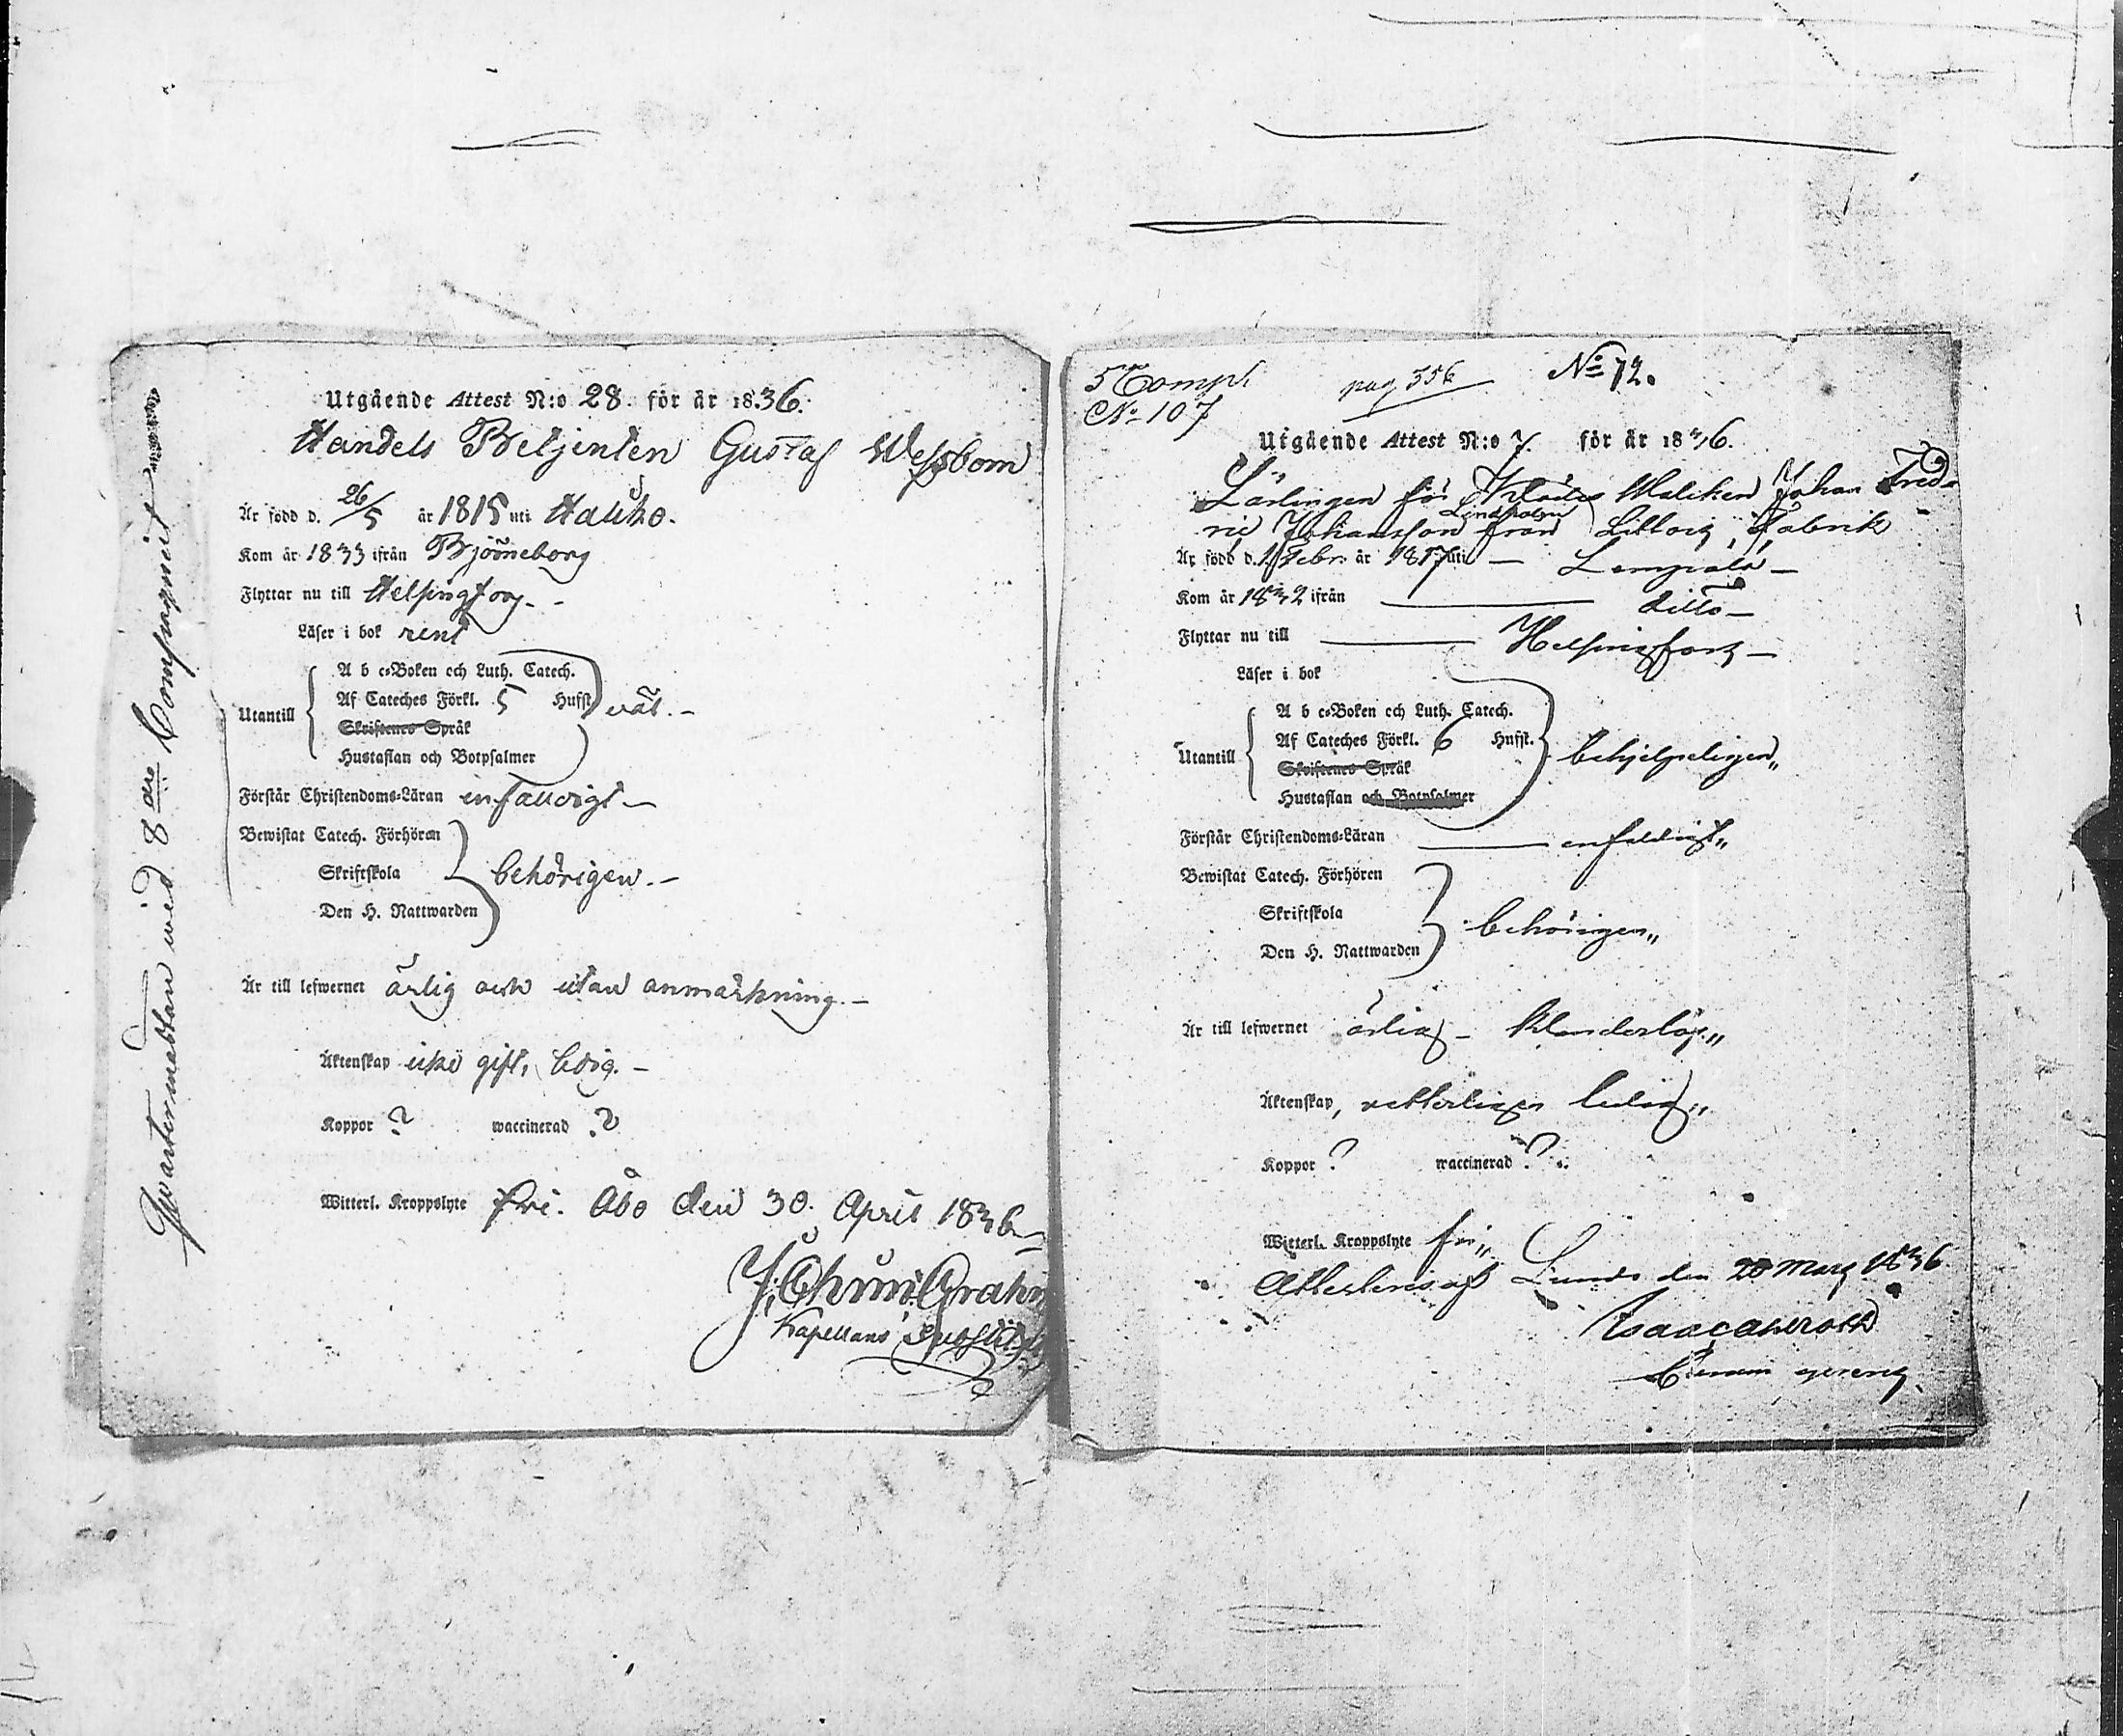 Qvartermästan wid 8de Compagniet
Utgående Attest N:o 28. för år 1836.
Handels Betjenten Gustaf Wessbom
Är född d. 26/5 år 1815 uti Hauho.
Kom år 1833 ifrån Björneborg
Flyttar nu till Helsingfors. -
Läser i bok rent
A b c-Boken och Luth. Catech.
Af Cateches Förkl. 5 Hufst.
Utantill väl. -
Skriftenes Språk
Hustaflan och Botpsalmer
Förstår Christendoms-Läran enfalldigt -
Bewistat Catech. Förhören
Skriftskola behörigen. -
Den H. Nattwarden
Är till lefwernet ärlig och utan anmärkning. -
Äktenskap icke gift, ledig. -
Koppor ? waccinerad ?
Witterl. Kroppslyte fri. Åbo den 30. April 1836
Grahn
Kapellans
5 Comp. pag 356 No 72.
No 107
Utgående Attest N:o 7. för år 1836.
Lärlingen för Johan Fred
ric Johansson Lindholm från Littois Fabrik
Är född d. 1 Febr. år 1817 uti — Lempälä —
Kom år 1832 ifrån — ditto —
Flyttar nu till — Helsingfors —
Läser i bok
A b c-Boken och Luth. Catech.
Af Cateches Förkl. 6 Hufst.
Utantill behjelpeligen
Skriftenes Språk
Hustaflan och Botpsalmer
Förstår Christendoms-Läran — enfaldigt
Bewistat Catech. Förhören
Skriftskola behörigen
Den H. Nattwarden
Är till lefwernet ärlig - klanderlös
Äktenskap, ledig
Koppor ? waccinerad ?
Witterl. Kroppslyte fri
Attesteras af Lundo den 20 Mars 1836